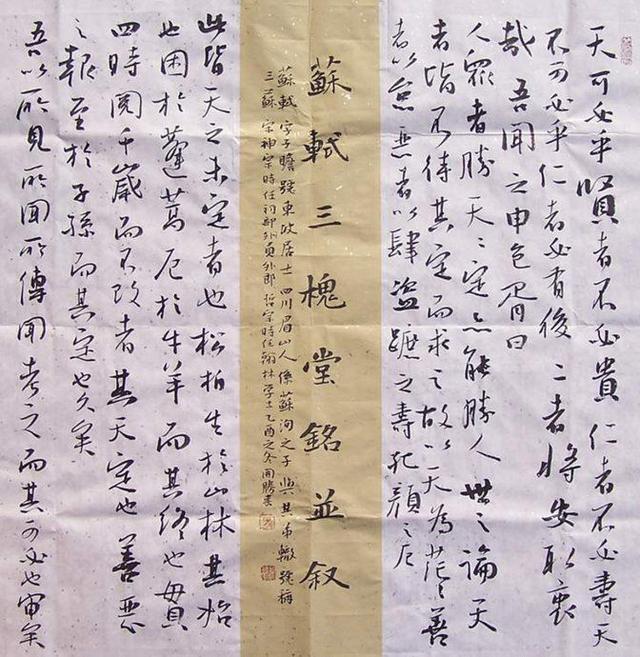 天可必乎賢者不必貴仁者不必壽天
不可必乎仁者必有後二者將安取衷
哉吾聞之申包胥曰
人眾者勝天〻定亦能勝人世之論天
者皆不待其定而求之故以天為茫〻善
者以怠惡者以肆盜蹠之壽孔顏之厄
蘇軾三槐堂銘並叙
蘇軾字子瞻號東坡居士四川眉山人係蘇洵之子與其弟轍號稱
三蘇宋神宗時任祠部員外郎哲宗時任翰林學士乙酉之冬勝書
此皆天之未定者也松柏生於山林其始
也困於蓬蒿厄於牛羊而其終也貫
四時閱千歲而不改者其天定也善惡
之報至於子孫而其定也久矣
吾以所見所聞所傳聞考之而其可必也審矣